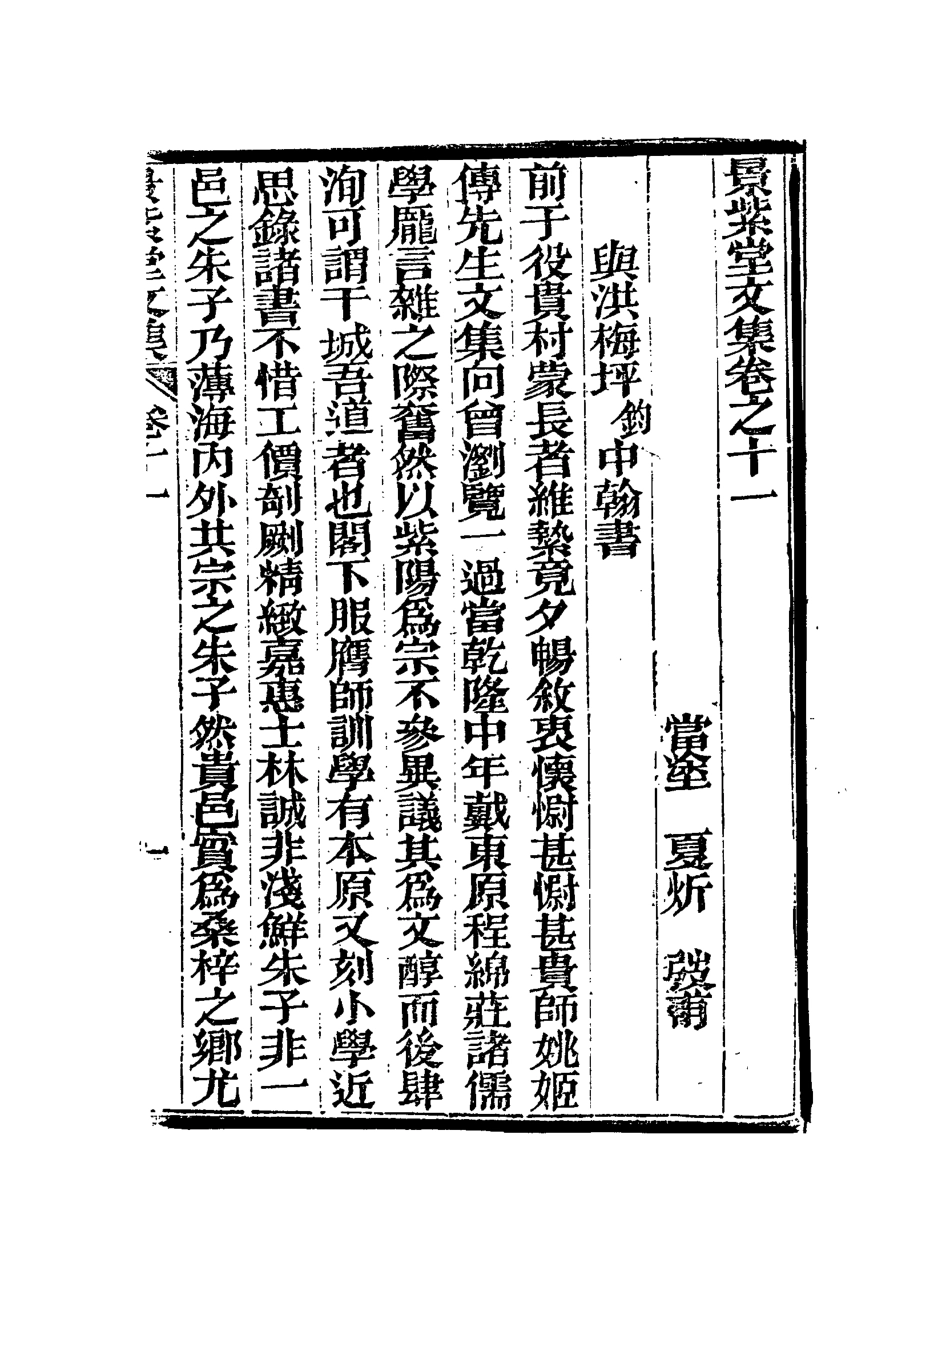 景紫堂文集卷之十一
當塗　夏炘　弢甫
與洪梅坪鈞中翰書
前于役貴村蒙長者維縶竟夕暢敘衷懷慰甚慰甚貴師姚姬
傳先生文集向曾瀏覽一過當乾隆中年戴東原程綿莊諸儒
學龐言雜之際奮然以紫陽爲宗不參異議其爲文醇而後肆
洵可謂干城吾道者也閣下服膺師訓學有本原又刻小學近
思錄諸書不惜工價剞劂精緻嘉惠士林誠非淺鮮朱子非一
邑之朱子乃薄海內外共宗之朱子然貴邑實爲桑梓之鄉尤
景紫堂文集　卷十一　一